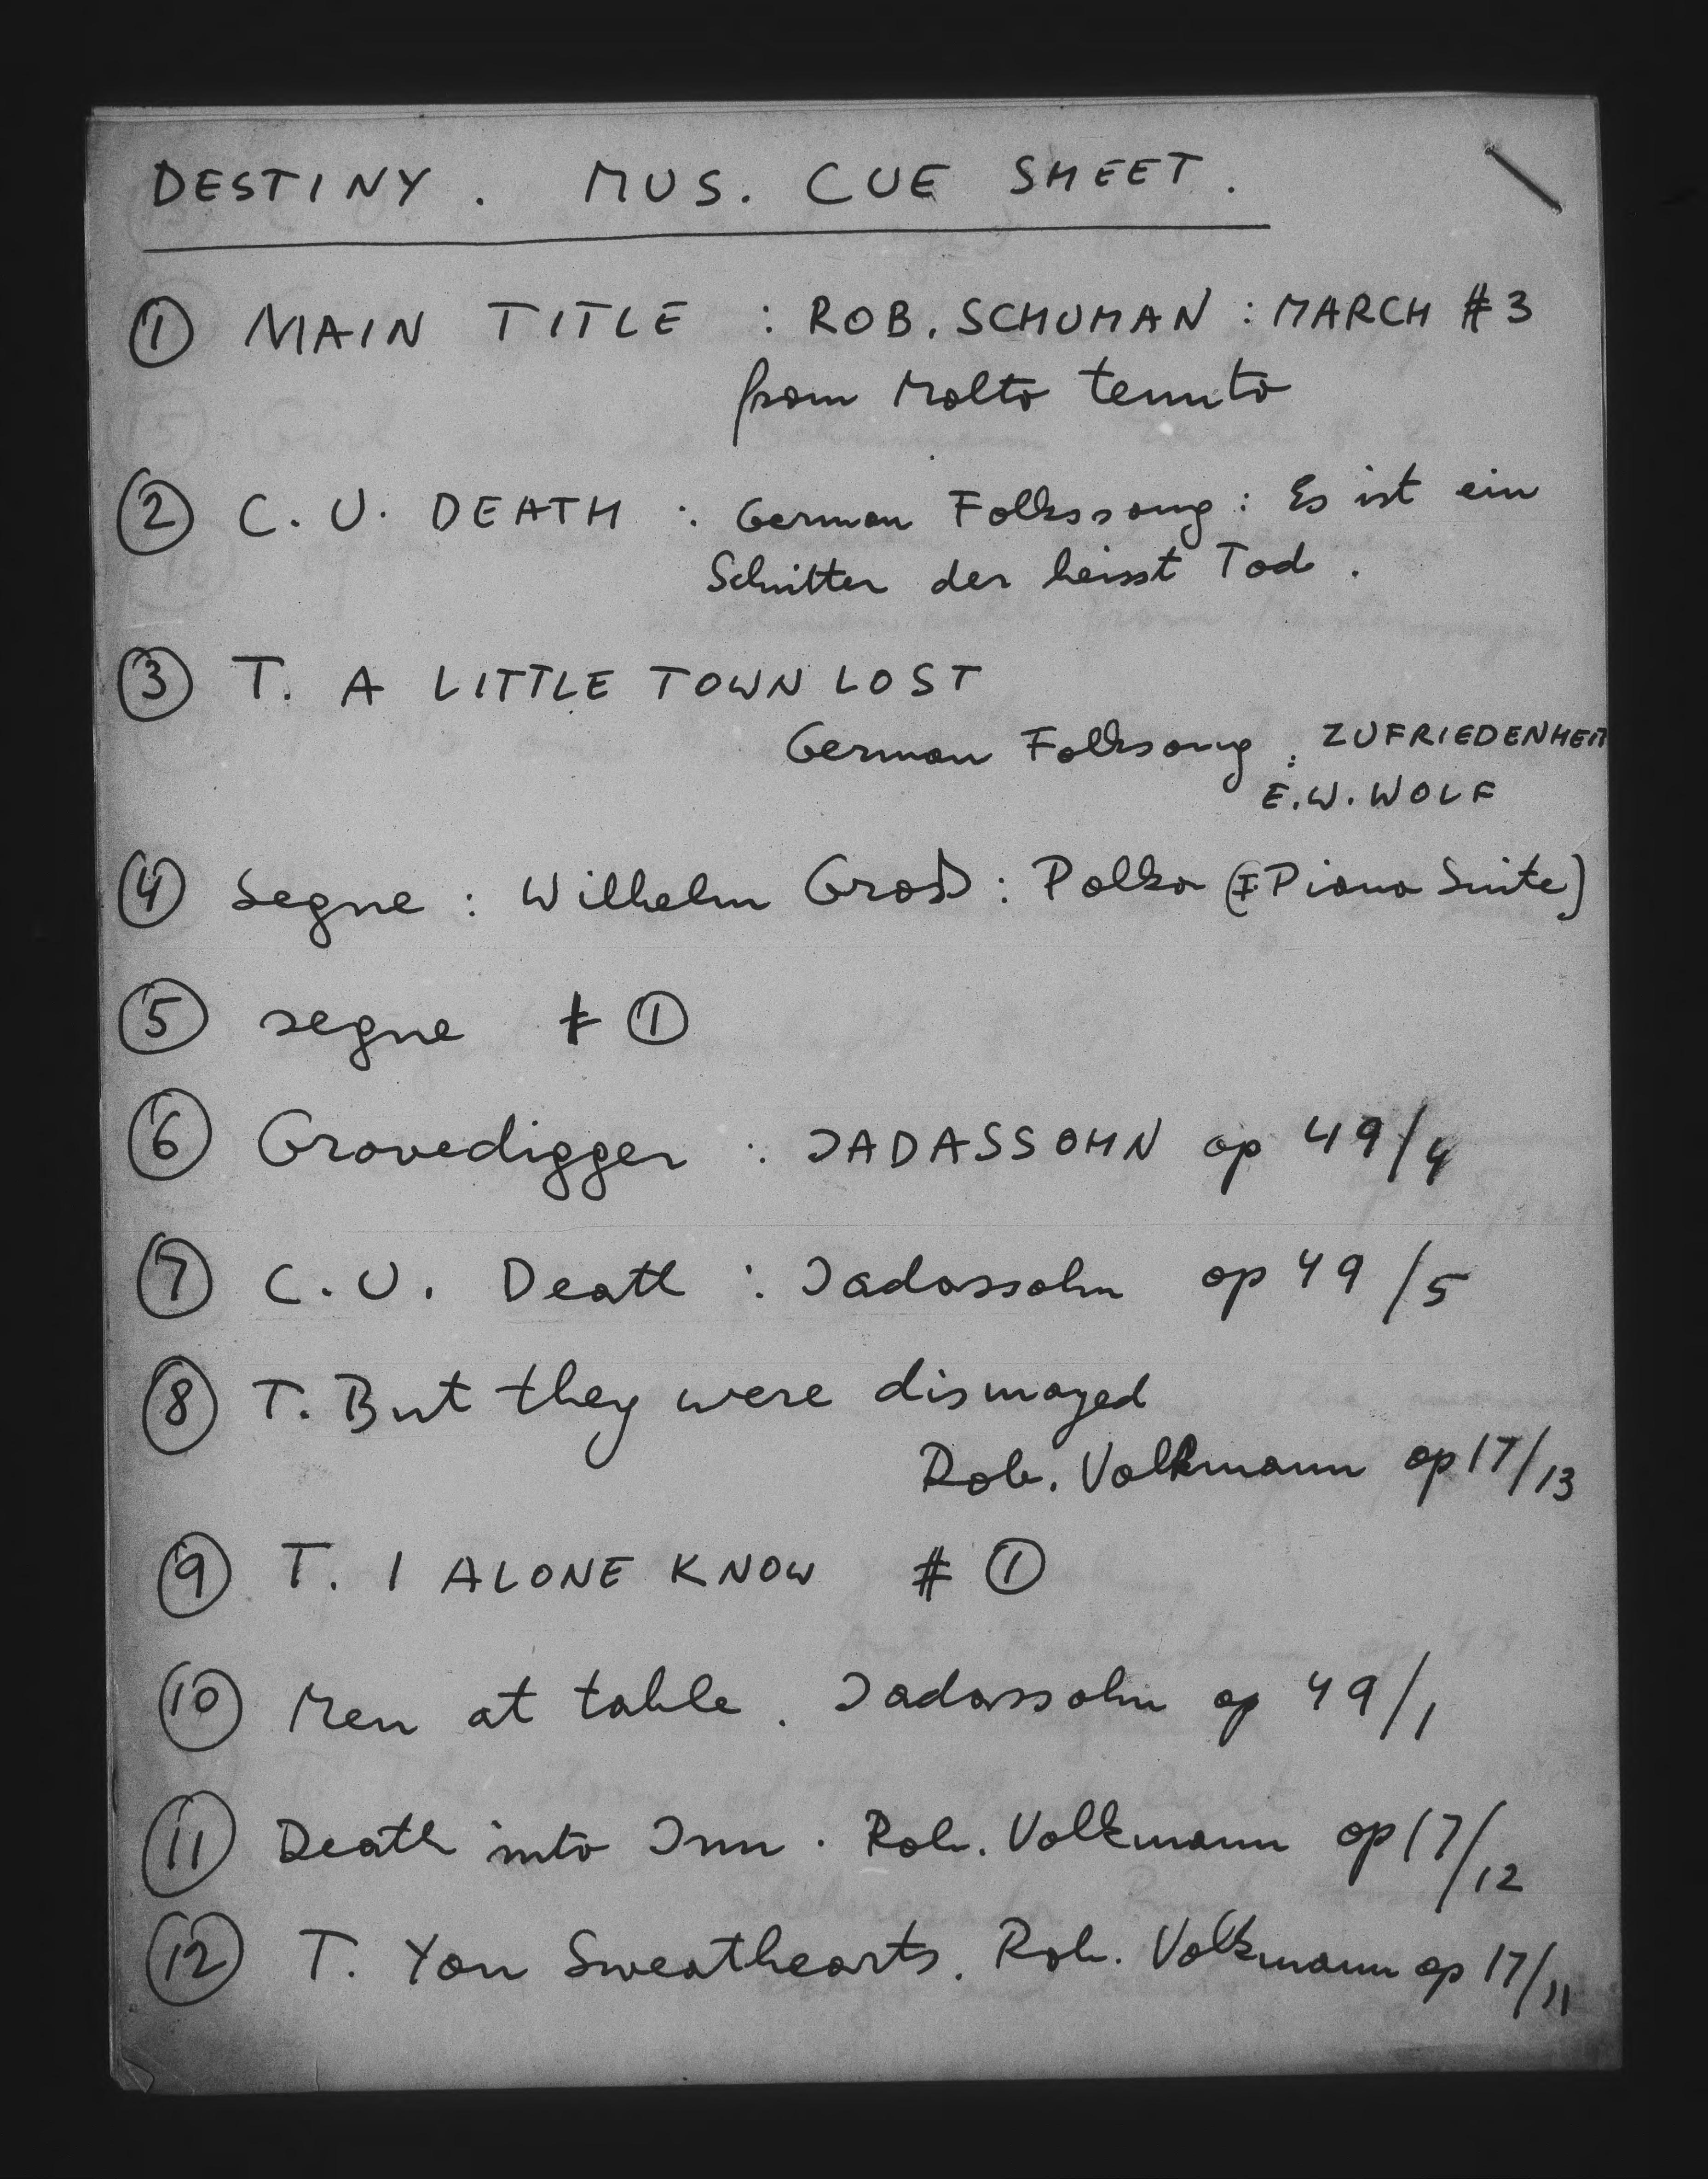 DESTINY. MUS. CUE SHEET.
① MAIN TITLE : ROB. SCHUMAN : MARCH #3
from Molto tenuto
② C. U. DEATH : German Folkssong : Es ist ein
Schnitter der heisst Tod.
③ T. A LITTLE TOWN LOST
German Folksong : ZUFRIEDENHEIT
E.W. WOLF
④ Segue : Wilhelm Groß : Polka (I Piano Suite)
⑤ segue # ①
⑥ Gravedigger : JADASSOHN op 49/4
⑦ C. U. Death : Jadassohn op 49/5
⑧ T. But they were dismayed
Rob. Volkmann op 17/13
⑨ T. I ALONE KNOW # ①
⑩ Men at table. Jadassohn op 49/1
⑪ Death into Inn. Rob. Volkmann op 17/12
⑫ T. You Sweathearts. Rob. Volkmann op 17/11